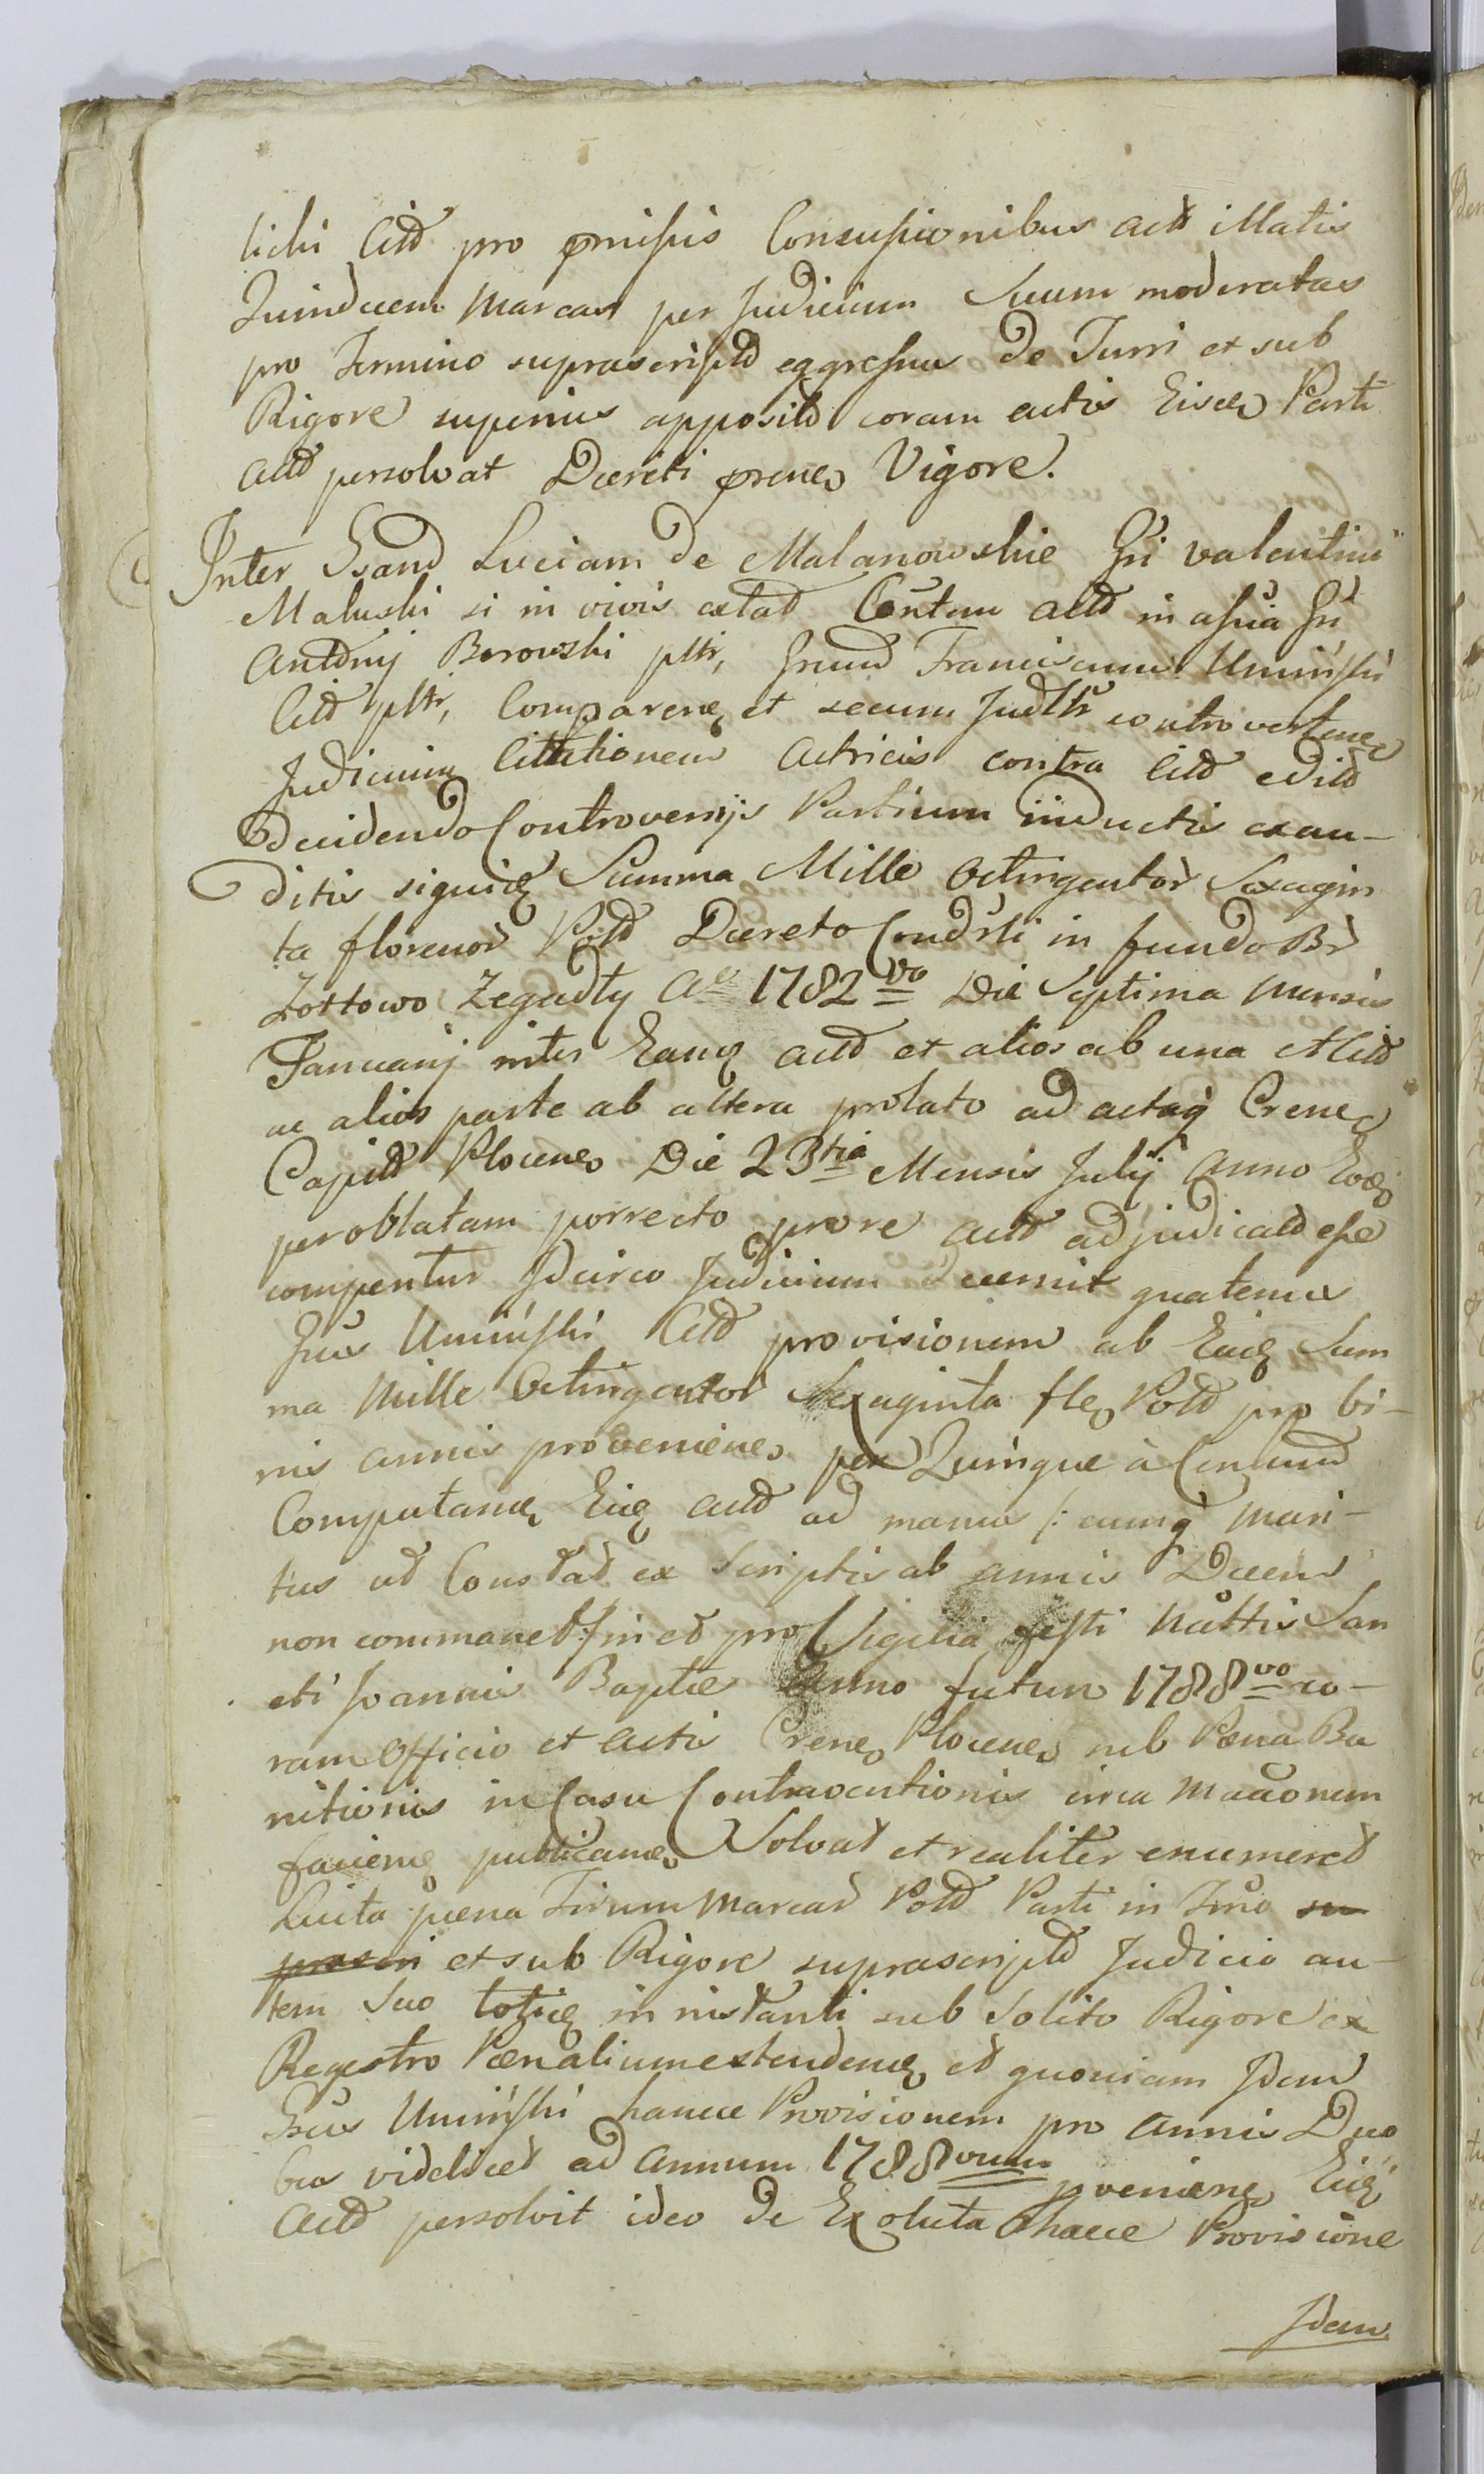 licki Citd pro praemissis Concussionibus Actt illatis
Quindecem Marcas per Judicium Suum moderatas
pro Termino suprascriptd eggressus de Turri et sub
Rigore superius apposito coram actis Eisdem Parti
Actt persolvat Decreti praenes Vigore.
Inter Gsam Luciam de Malanowskie Gsi Valentini
Maluski si in vivis extat Contem Actt in assia Gsi
Antonij Borowski pltr, Gsmum Franciscum Umiński
Citt pltr, Comparenq et secum Judltr controvertenq
Judicium Cittationem Actricis contra Citd edit
Decidendo Controversijs Partium inductis exau-
ditis siquidq Summa Mille Octingentor Sexagin
ta florenor Pold Decreto Condrli in fundo Br
Zottowo Zegadty Ao 1782 vo Die Septima Mensis
Januarij inter Eanq actt et alios ab una et Citd
ac alios parte ab altera prolato ad actaq Crenes
Capitt Plocenes Die 23tia Mensis Julij Anno Eodq
per oblatam porrecto prore Actt adjudicatd esse
comperitur Idcirco Judicium decernit quatenus
Gsus Umiński Citd provisionem ab Eadq Sum
ma Mille Octingentor Sexaginta fles Pold pro bi-
nis annis provenienes per Quinque à Centum
Computanq Eidq Actt ad manus /: cumq Mari-
tus ut Constat ex Scriptis ab annis Decem
non commanet :/ in et pro Vigilia festi Nattis San
cti Joannis Baptae Anno futuro 1788 vo co-
ram Officio et Actis Crenes Plocenes sub Paena Ba
nitionis in Casu Contraventionis circa
facienq publicanes Solvat et realiter enumeret
Luita paena Trium Marcar Pold Parti in Tmo su
prascri et sub Rigore suprascriptd Judicio au-
tem Suo totidq in instanti sub Solito Rigore ex
Regestro Paenalium extendenq et quoniam Idem
Gsus Umiński hancce Provisionem pro Annis Duo
bus videlicet ad Annum 1788 vum provenienes Eidq
Actt persolvit ideo de Exoluta hacce Provisione
Idem